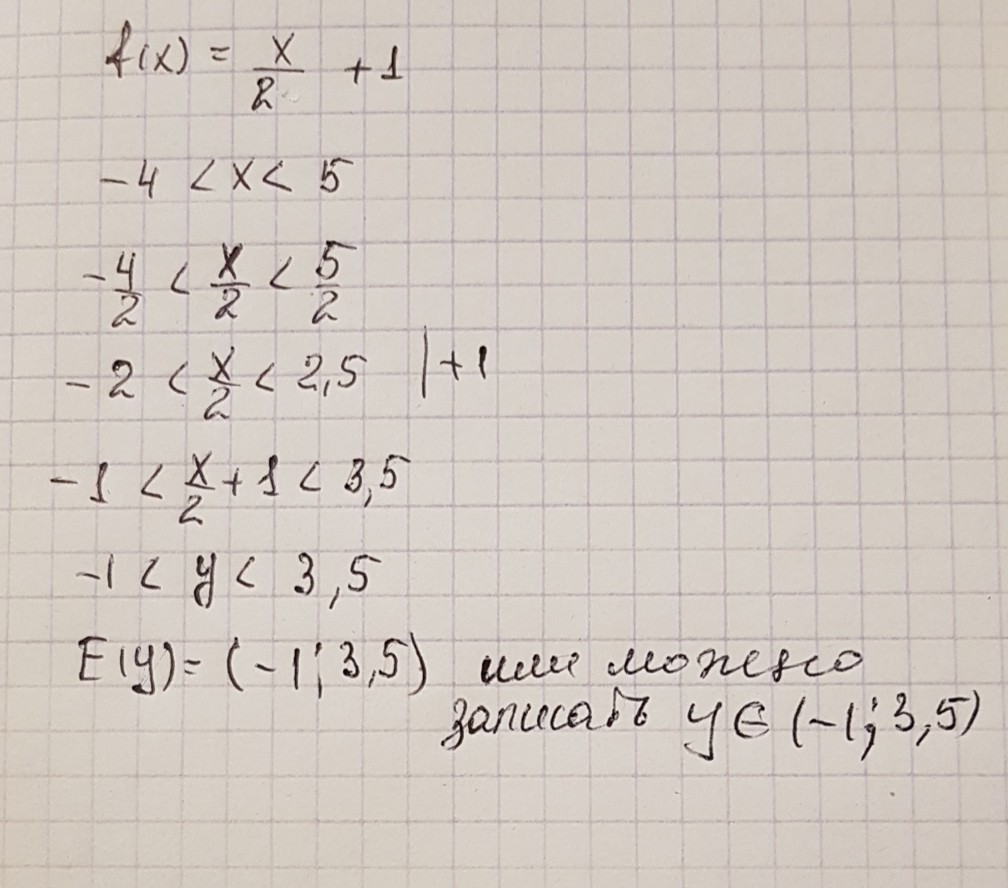 f(x) = x/2 + 1
-4 < x < 5
-4/2 < x/2 < 5/2
-2 < x/2 < 2,5 | +1
-1 < x/2 + 1 < 3,5
-1 < y < 3,5
E(y) = (-1; 3,5) или можно
записать y ∈ (-1; 3,5)